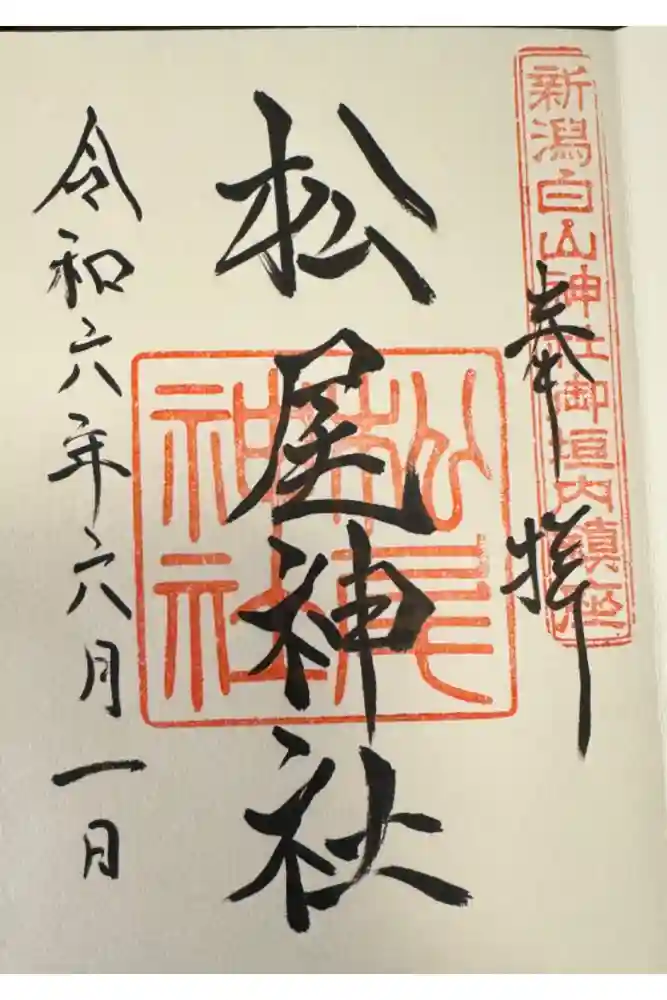 新潟白山神社御垣内鎮座
奉拝
松尾神社
松尾神社
令和六年六月一日